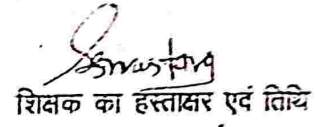 शिक्षक का हस्ताक्षर एवं तिथि